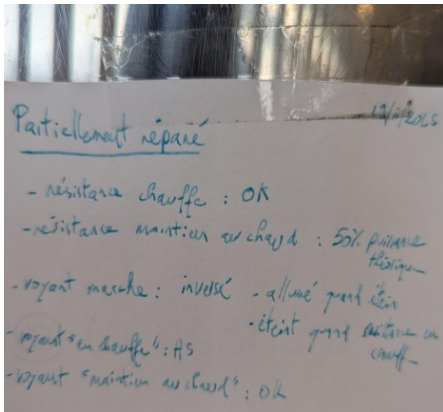 19/1/2025
Partiellement réparé
- résistance chauffe : OK
- résistance maintien au chaud : 50% puissance
théorique
- voyant marche : inversé - allumé quand étein
- éteint quand résistance en
chauffe
- voyant "en chauffe" : HS
- voyant "maintien au chaud" : OK